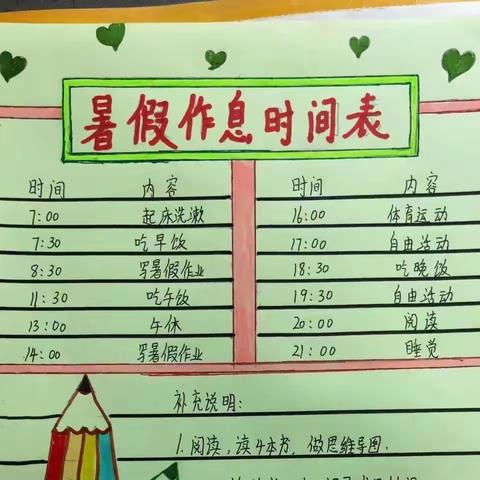 暑假作息时间表
时间 内容
7:00 起床洗漱
7:30 吃早饭
8:30 写暑假作业
11:30 吃午饭
13:00 午休
14:00 写暑假作业
时间 内容
16:00 体育运动
17:00 自由活动
18:30 吃晚饭
19:30 自由活动
20:00 阅读
21:00 睡觉
补充说明:
1.阅读,读4本书,做思维导图.